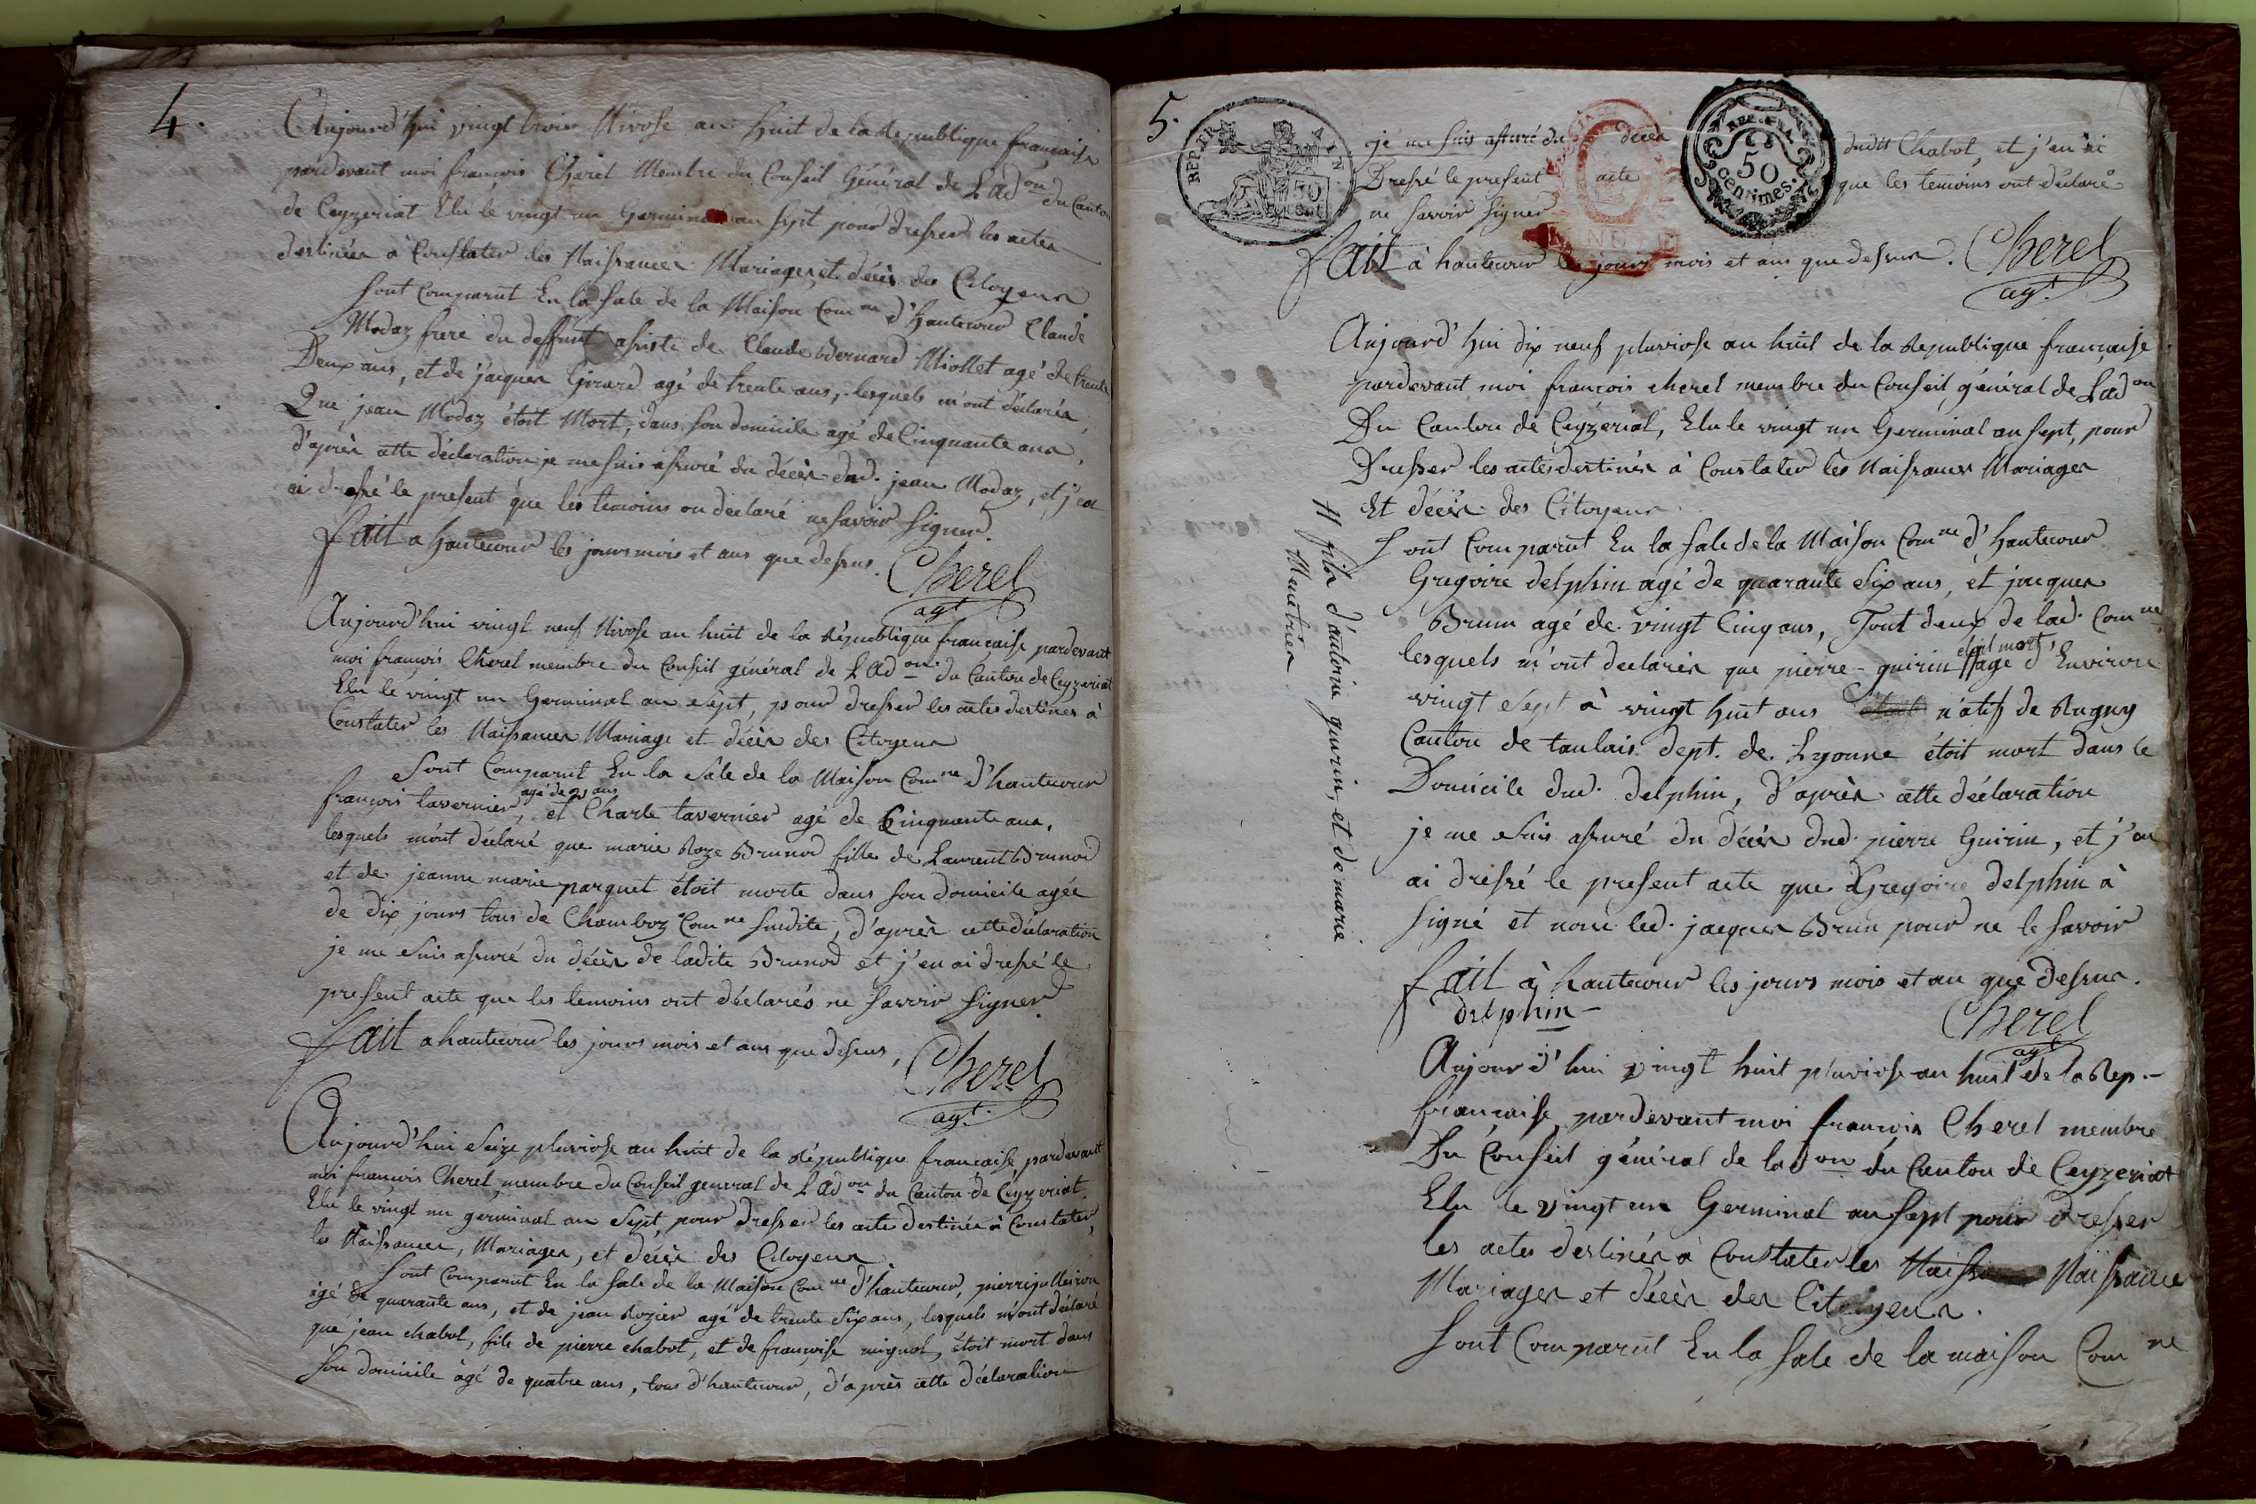 4.
Aujourd'hui vingt trois Nivose an huit de la Republique française
pardevant moi françois Cherel Membre du Conseil Général de LAdon du Canton
de Ceyzeriat Elu le vingt un Germinal an sept pour dresser les actes
destinées a Constater les Naissances Mariages et décès des Citoyens
sont Comparut En la sale de la Maison Comne d'Hautecour Claude
Modaz frere du deffunt assisté de Claude Bernard Miollet agé de trente
Deux ans, et de jacques Girard agé de trente ans, lesquels m'ont déclarés
Que jean Modaz étoit Mort, dans son domicile agé de Cinquante ans,
d'après cette déclaration je me suis assuré du décès dud. jean Modaz, et j'en
ai dressé le present que les temoins on déclaré ne savoir signer.
fait a hautecour les jours mois et ans que dessus.
Cherel
agt
Aujourd'hui vingt neuf Nivose an huit de la République française pardevant
moi françois Cherel membre du Conseil général de LAdon du Canton de Ceyzeriat
Elu le vingt un Germinal an sept, pour dresser les actes destinés à
Constater les Naissances Mariage et décès des Citoyens
Sont Comparut En la Sale de la Maison Comne d'hautecour
agé de ans
françois tavernier, et Charle tavernier agé de Cinquante ans,
lesquels m'ont déclaré que marie Roze Brunod fille de Laurent Brunod
et de jeanne marie parquet étoit morte dans son domicile agée
de dix jours tous de Chamboz Comne susdite, d'après cette déclaration
je me suis assuré du décès de ladite Brunod et j'en ai dressé le
present acte que les temoins ont déclarés ne savoir signer
fait a hautecour les jours mois et ans que dessus,
Cherel
agt.
Aujourd'hui Seize pluviose an huit de la République française, pardevant
moi françois Cherel membre du Conseil general de LAdon du Canton de Ceyzeriat.
Elu le vingt un germinal an sept, pour dresser les acte destinés à Constater
les Naissances, Mariages, et décès des Citoyens
sont Comparut En la sale de la Maison Comne d'hautecour, pierre
agé de quarante ans, et de jean Rozier agé de trente six ans, lesquels m'ont déclaré
que jean chabot, fils de pierre chabot, et de françoise mignot, étoit mort dans
son domicile âgé de quatre ans, tous d'hautecour, d'après cette déclaration
5.
REP. FRA
50
cent
REP. FRA.
50
centimes.
je me suis assuré du décès dudit Chabot, et j'en ai
Dressé le present acte que les temoins ont déclaré
ne savoir signer
fait à hautecour les jours mois et ans que dessus.
Cherel
agt.
Aujourd'hui dix neuf pluviose an huit de la Republique française
pardevant moi francois cherel membre du Conseil général de LAdon
Du Canton de Ceyzeriat, Elu le vingt un Germinal an sept, pour
Dresser les actes destinés à Constater les Naissances Mariages
Et décès des Citoyens
Sont Comparut En la sale de la Maison Comne d'Hautecour
Gregoire delphin agé de quarante six ans, et jacques
Brun agé de vingt Cinq ans, Tout deux de lad. Comne
étoit mort
lesquels m'ont declarés que pierre guirin # agé d'Environ
vingt sept à vingt huit ans étoit natif de Rugny
Canton de tanlais dept. de Lyonne étoit mort dans le
Domicile dud. delphin, d'après cette déclaration
je me suis assuré du décès dud. pierre Guirin, et j'en
ai dressé le present acte que Gregoire delphin à
signé et nom led. jacques Brun pour ne le savoir
fait à hautecour les jours mois et an que dessus.
delphin
Cherel
agt
# fils d'antoine guirin, et de marie
Meutrier
Aujourd'hui vingt huit pluviose an huit de la Rep.
française, pardevant moi françois Cherel membre
Du Conseil général de ladon du Canton de Ceyzeriat
Elu le vingt un Germinal an sept pour dresser
les actes destinés à Constater les Naissance
Mariages et décès des Citoyens.
Sont Comparut En la sale de la maison Comne